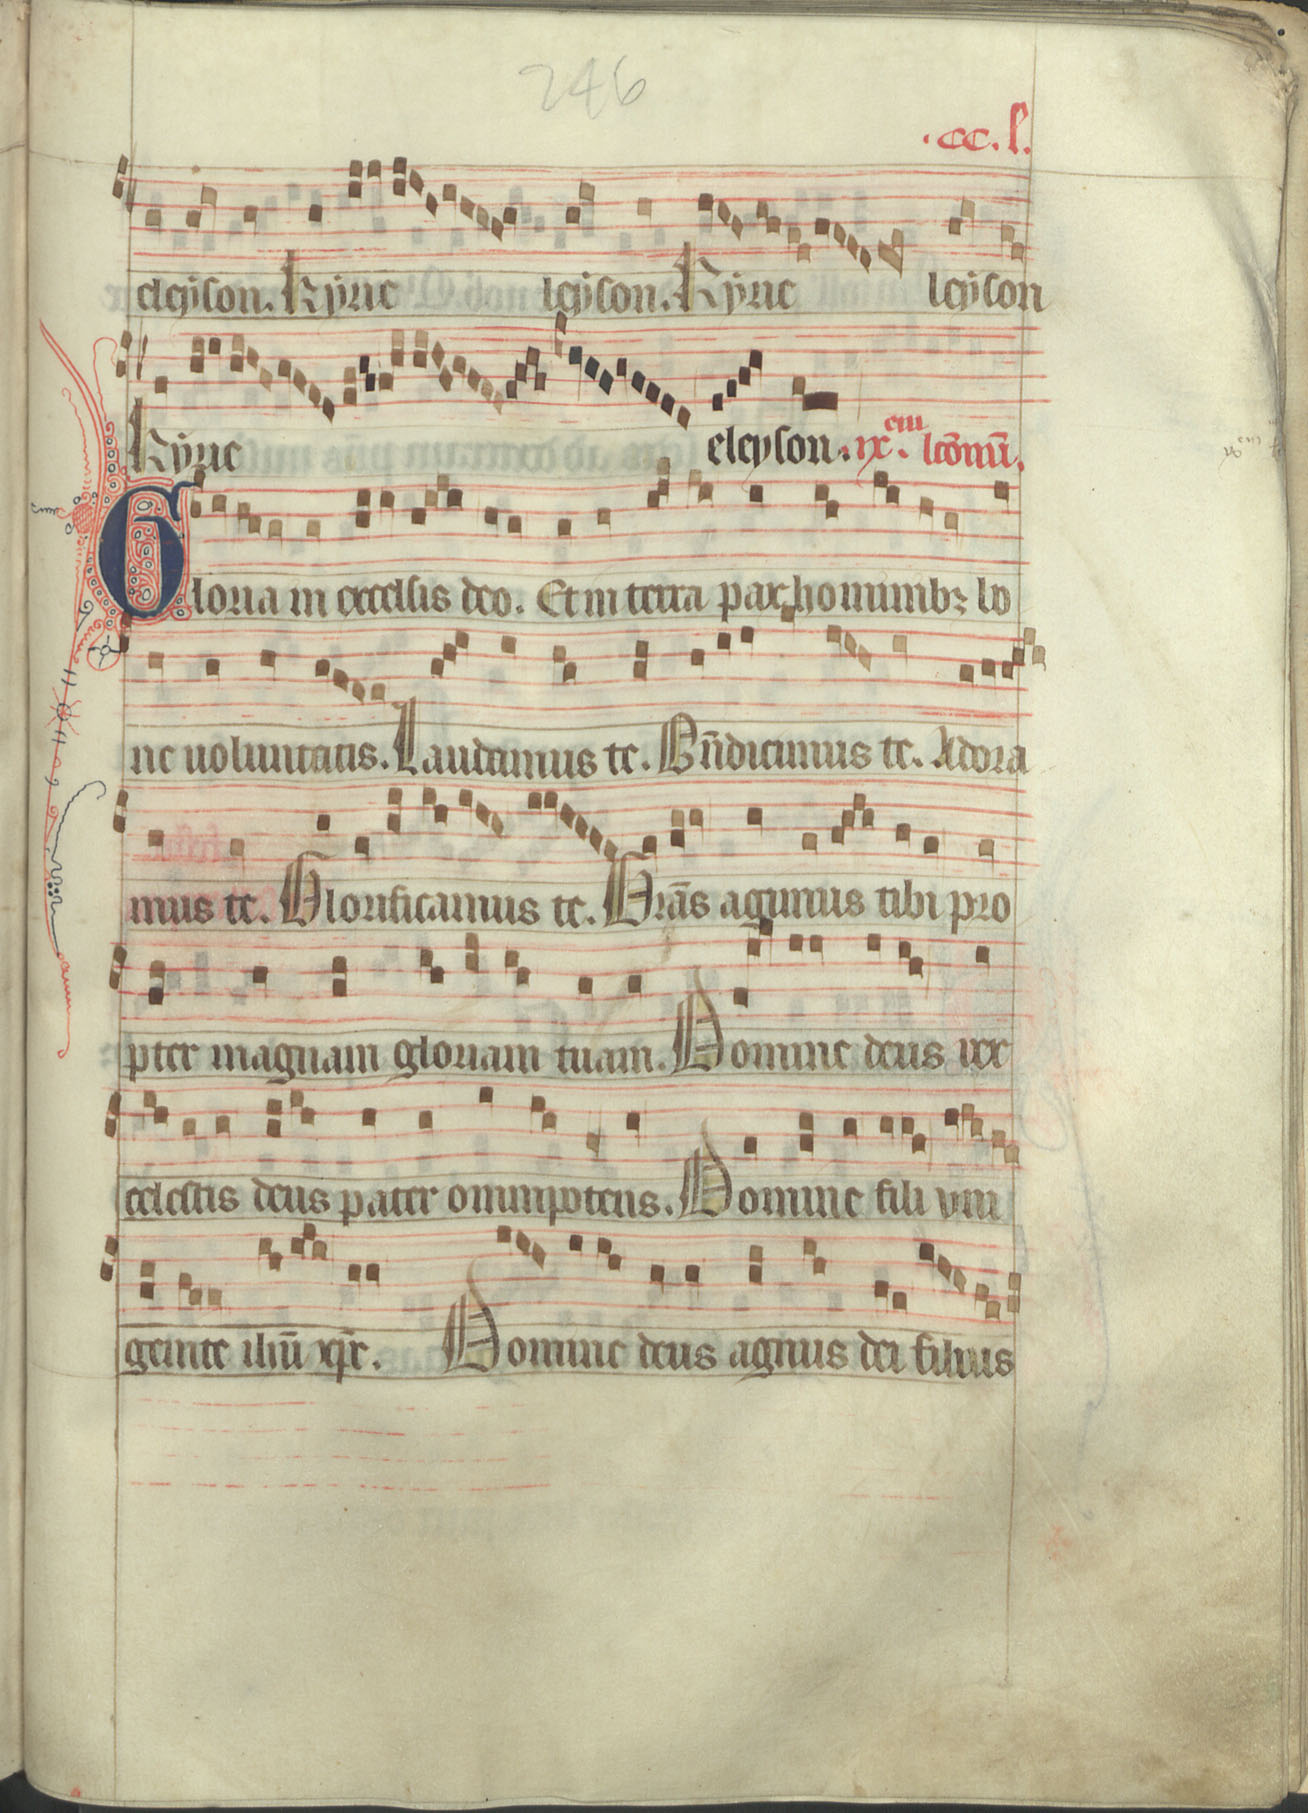 246
.cc.l.
eleyson. Kyrie leyson. Kyrie leyson
Kyrie eleyson. ix. lcōnū.
Gloria in excelsis deo. Et in terra pax hominibꝫ bo
ne uoluntatis. Laudamus te. Bn̄dicimus te. Adora
mus te. Glorificamus te. Grās agimus tibi pro
pter magnam gloriam tuam. Domine deus rex
celestis deus pater omnipotens. Domine fili vni
genite ihū xp̄e. Domine deus agnus dei filius